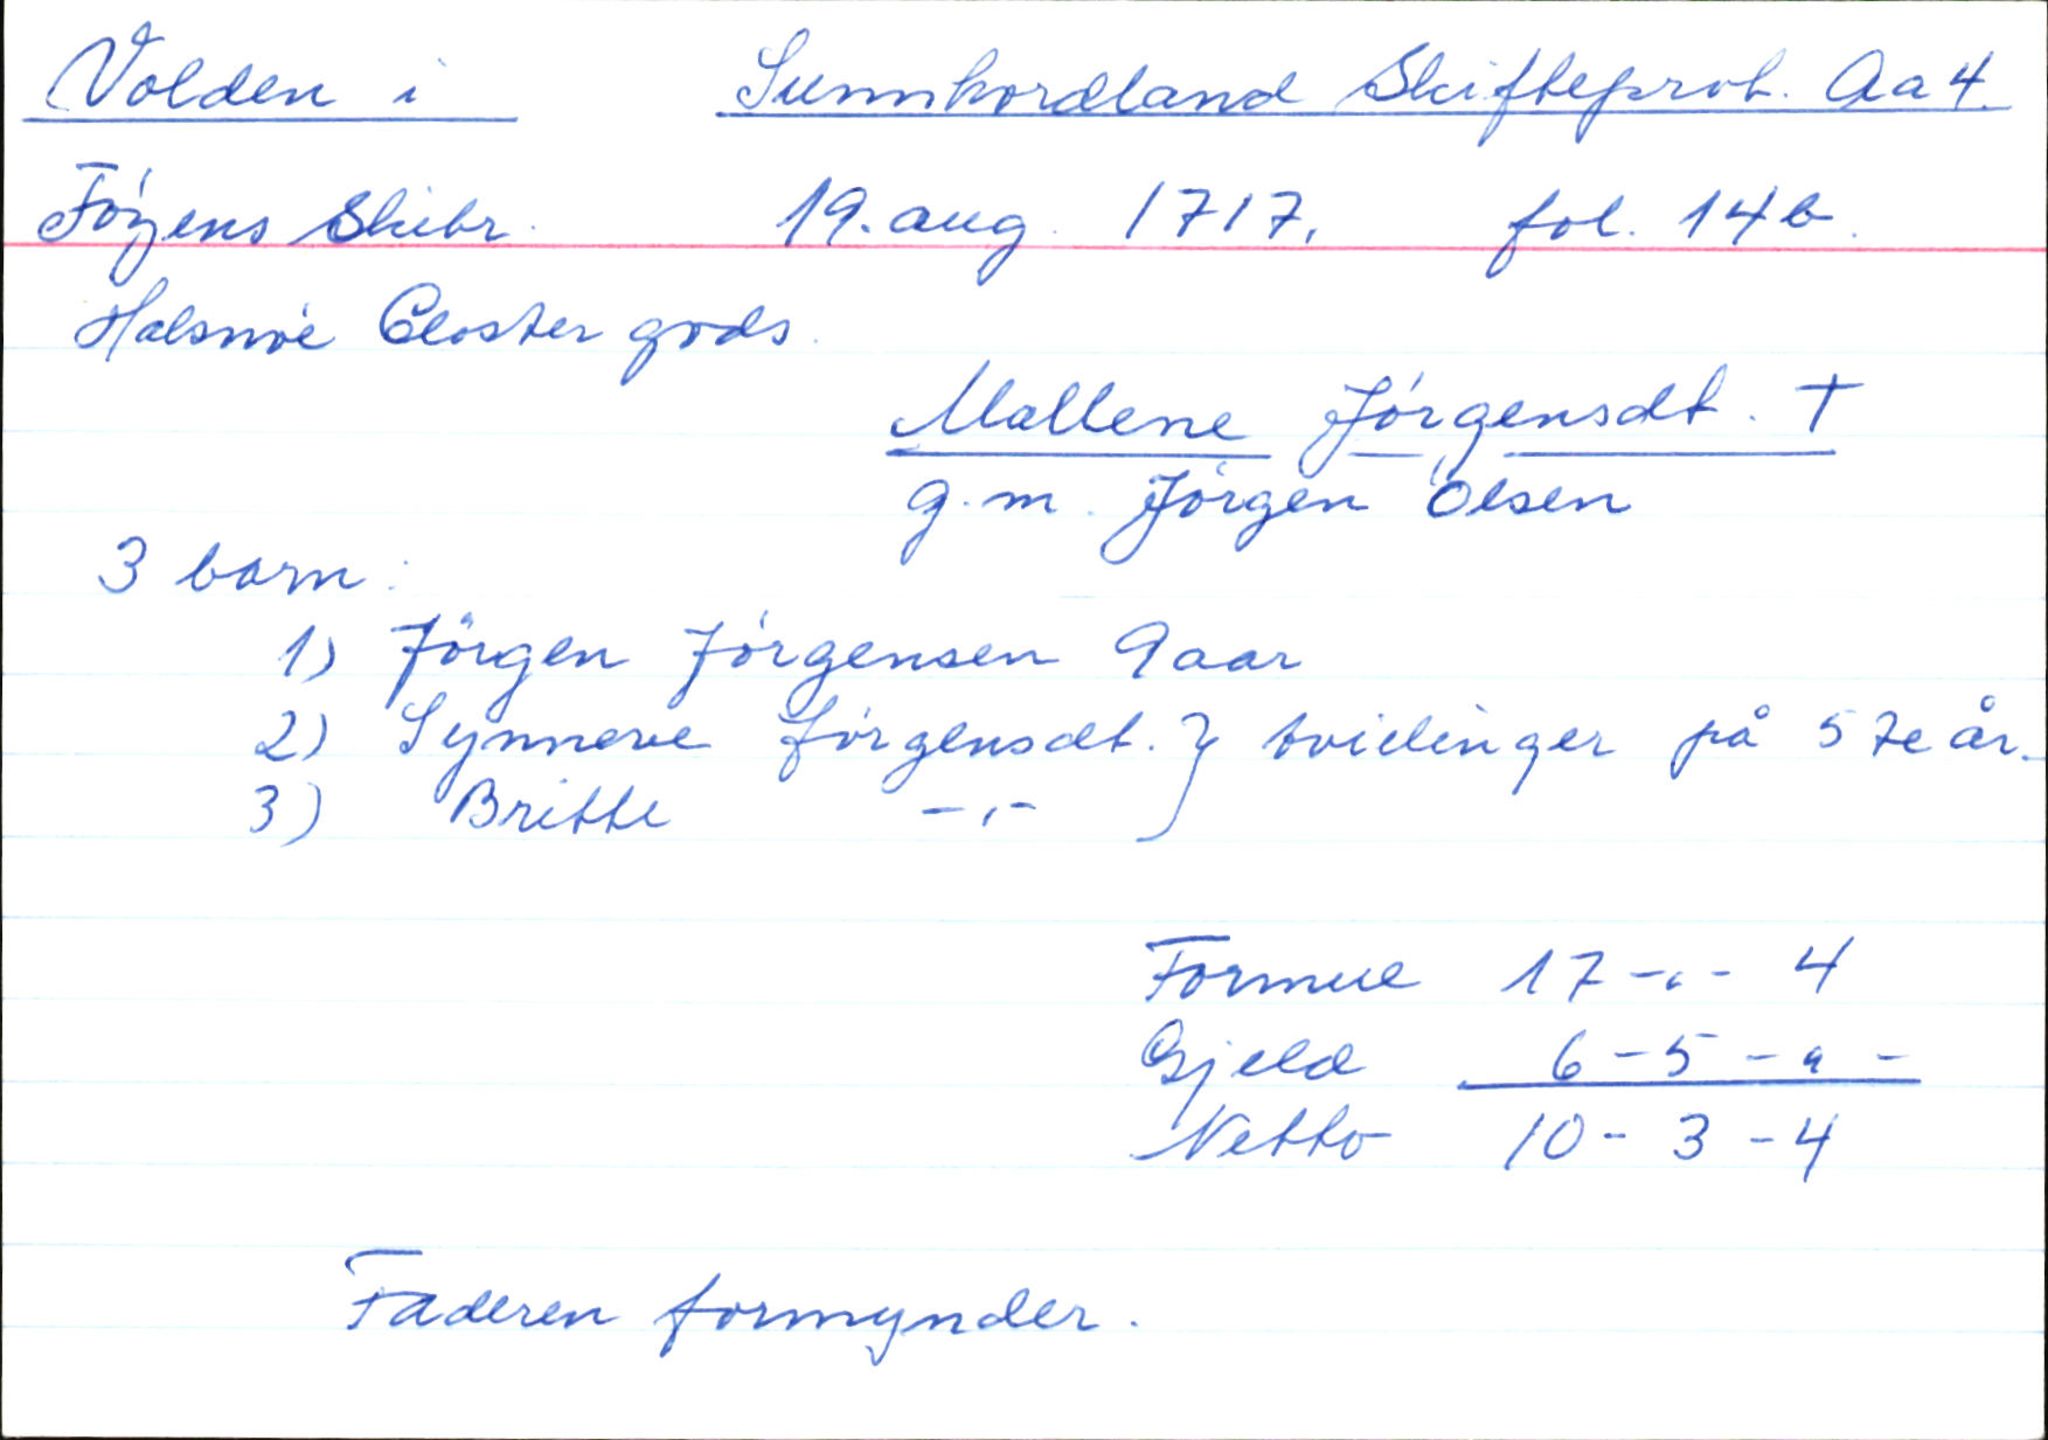 Volden i Sunnhordland Skifteprot. Aa 4.
Föyens Skibr. 19. aug. 1717, fol. 14 b.
Halsnöe Closter gods.
Mallene Jörgensdt. †
g. m. Jörgen Olsen
3 barn:
1) Jörgen Jörgensen 9 aar
2) Synneve Jörgensdt. } tvillinger på 5te år.
3) Britte -,-
Formue 17 -,- 4
Gjeld 6 - 5 - , -
Netto 10 - 3 - 4
Faderen formynder.